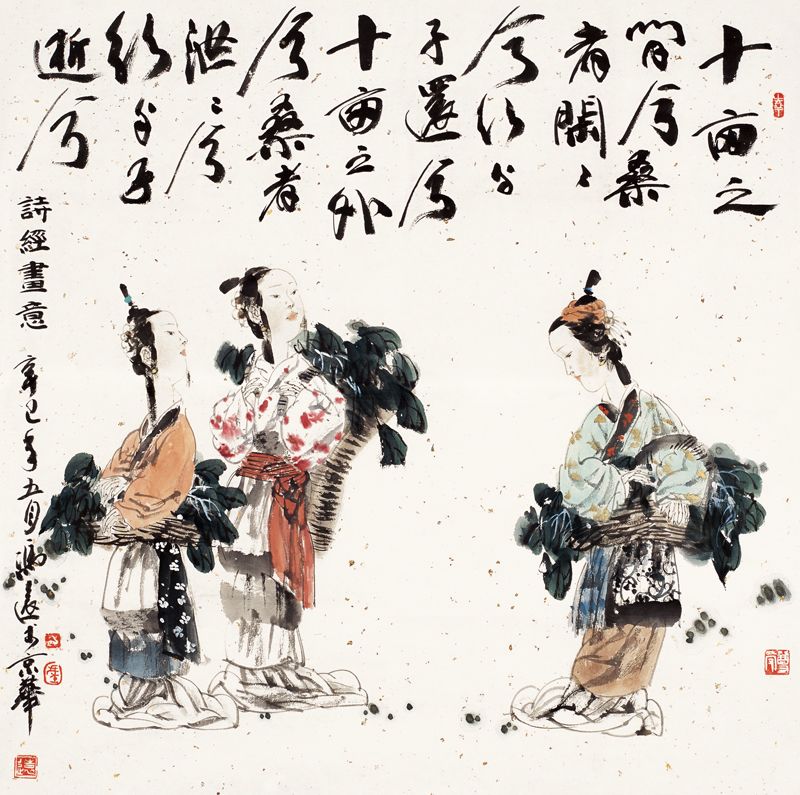 十亩之
間兮桑
者閑〻
兮行与
子還兮
十亩之外
兮桑者
泄〻兮
行与子
逝兮
詩經畫意 辛巳年五月馮遠於京華